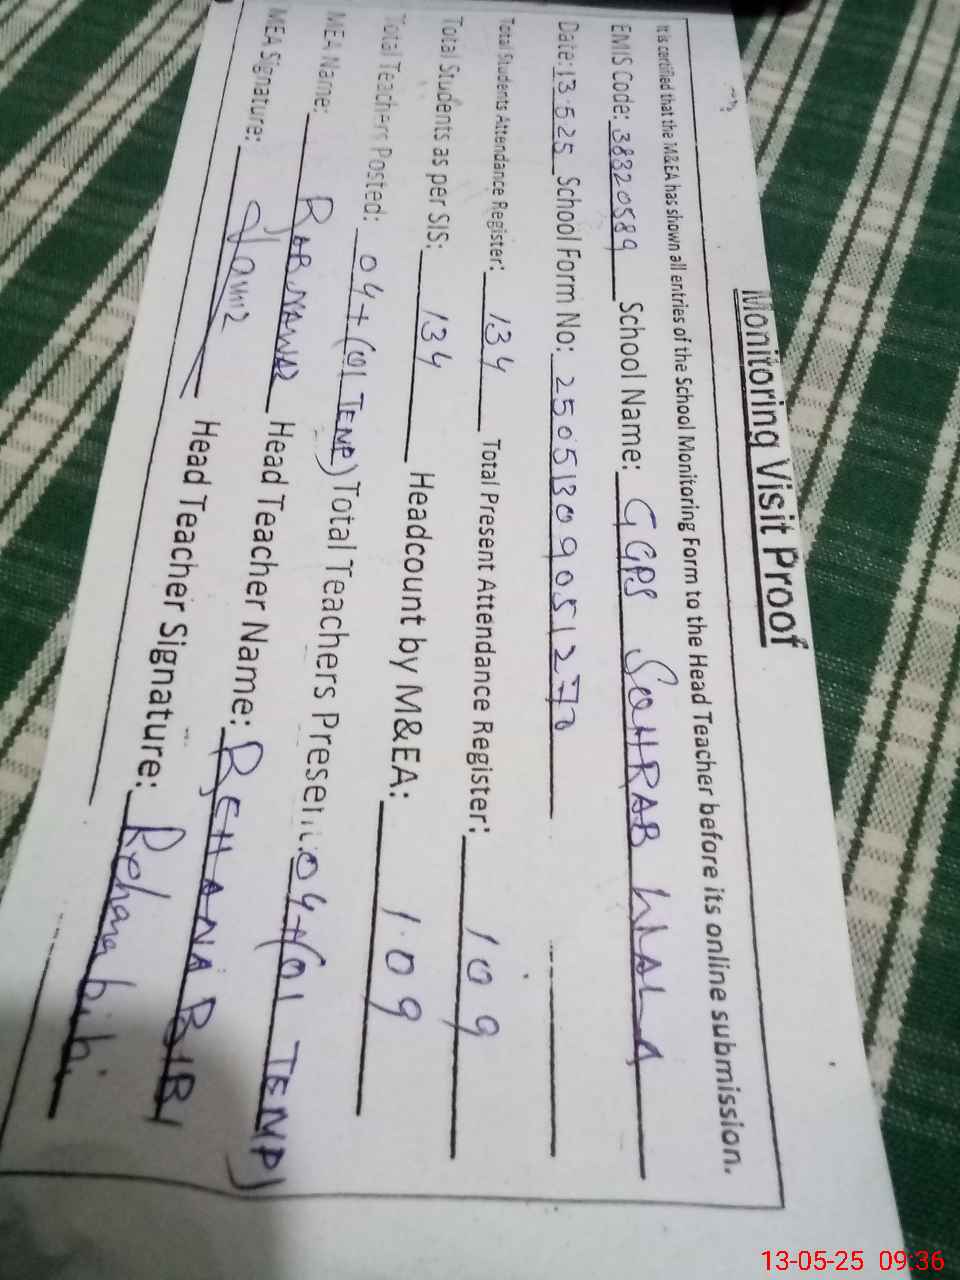 Monitoring Visit Proof
It is certified that the M&EA has shown all entries of the School Monitoring Form to the Head Teacher before its online submission.
EMIS Code: 38320589 School Name: GGPS SOHRAB WALA
Date: 13.525 School Form No: 2505130905127
Total Students Attendance Register: 134 Total Present Attendance Register: 109
Total Students as per SIS: 134 Headcount by M&EA: 109
Total Teachers Posted: 04+(01 TEMP) Total Teachers Present: 04+(01 TEMP)
MEA Name: RAB NAWAZ Head Teacher Name: REHANA BIBI
MEA Signature: Head Teacher Signature: Rehana bibi
13-05-25 09:36